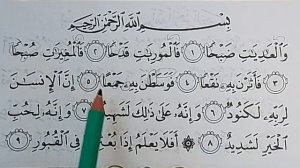 بِسْمِ اللَّهِ الرَّحْمَٰنِ الرَّحِيمِ
وَالْعَادِيَاتِ ضَبْحًا ١ فَالْمُورِيَاتِ قَدْحًا ٢ فَالْمُغِيرَاتِ صُبْحًا
٣ فَأَثَرْنَ بِهِ نَقْعًا ٤ فَوَسَطْنَ بِهِ جَمْعًا ٥ إِنَّ الْإِنسَانَ
لِرَبِّهِ لَكَنُودٌ ٦ وَإِنَّهُ عَلَىٰ ذَٰلِكَ لَشَهِيدٌ وَإِنَّهُ لِحُبِّ
الْخَيْرِ لَشَدِيدٌ ٨ أَفَلَا يَعْلَمُ إِذَا بُعْثِرَ مَا فِي الْقُبُورِ ٩